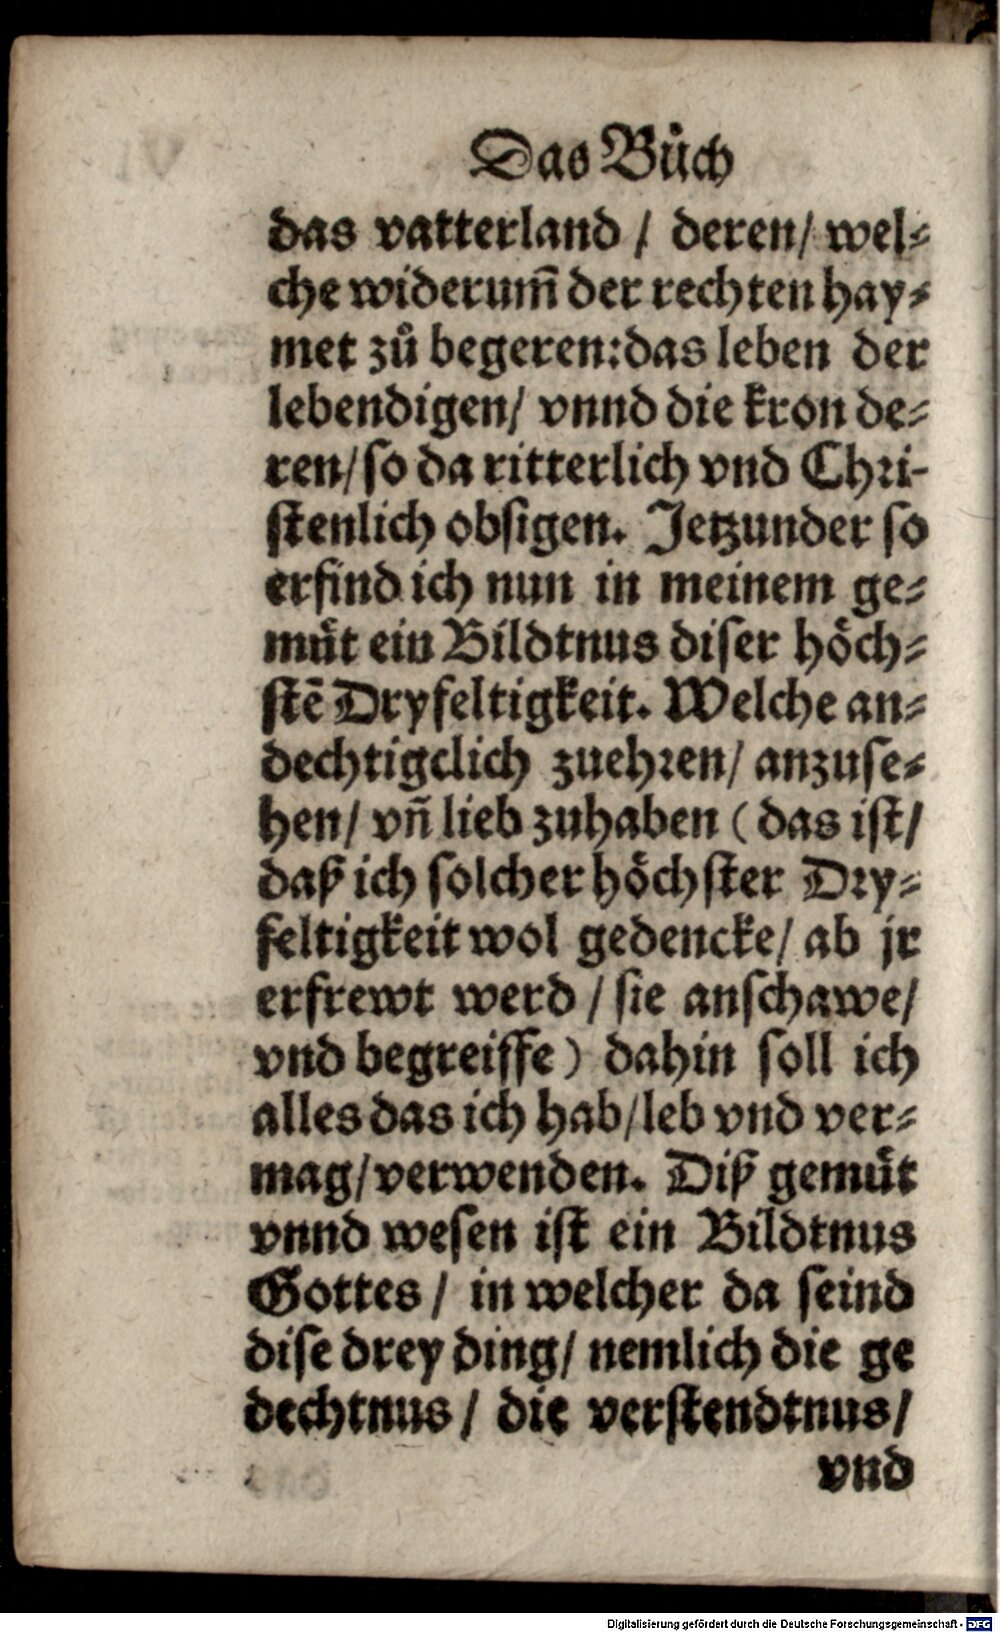 Das Bůch
das vatterland / deren / wel⸗
che widerum̃ der rechten hay⸗
met zů begeren: das leben der
lebendigen / vnnd die kron de⸗
ren / so da ritterlich vnd Chri-
stenlich obsigen. Jetzunder so
erfind ich nun in meinem ge⸗
muͤt ein Bildtnus diser hoͤch⸗
stē Dryfeltigkeit. Welche an⸗
dechtigclich zuehren / anzuse⸗
hen / vn̄ lieb zuhaben (das ist /
daß ich solcher hoͤchster Dry⸗
feltigkeit wol gedencke / ab jr
erfrewt werd / sie anschawe /
vnd begreiffe) dahin soll ich
alles das ich hab / leb vnd ver⸗
mag / verwenden. Diß gemuͤt
vnnd wesen ist ein Bildtnus
Gottes / in welcher da seind
dise drey ding / nemlich die ge
dechtnus / die verstendtnus /
vnd
Digitalisierung gefördert durch die Deutsche Forschungsgemeinschaft - DFG